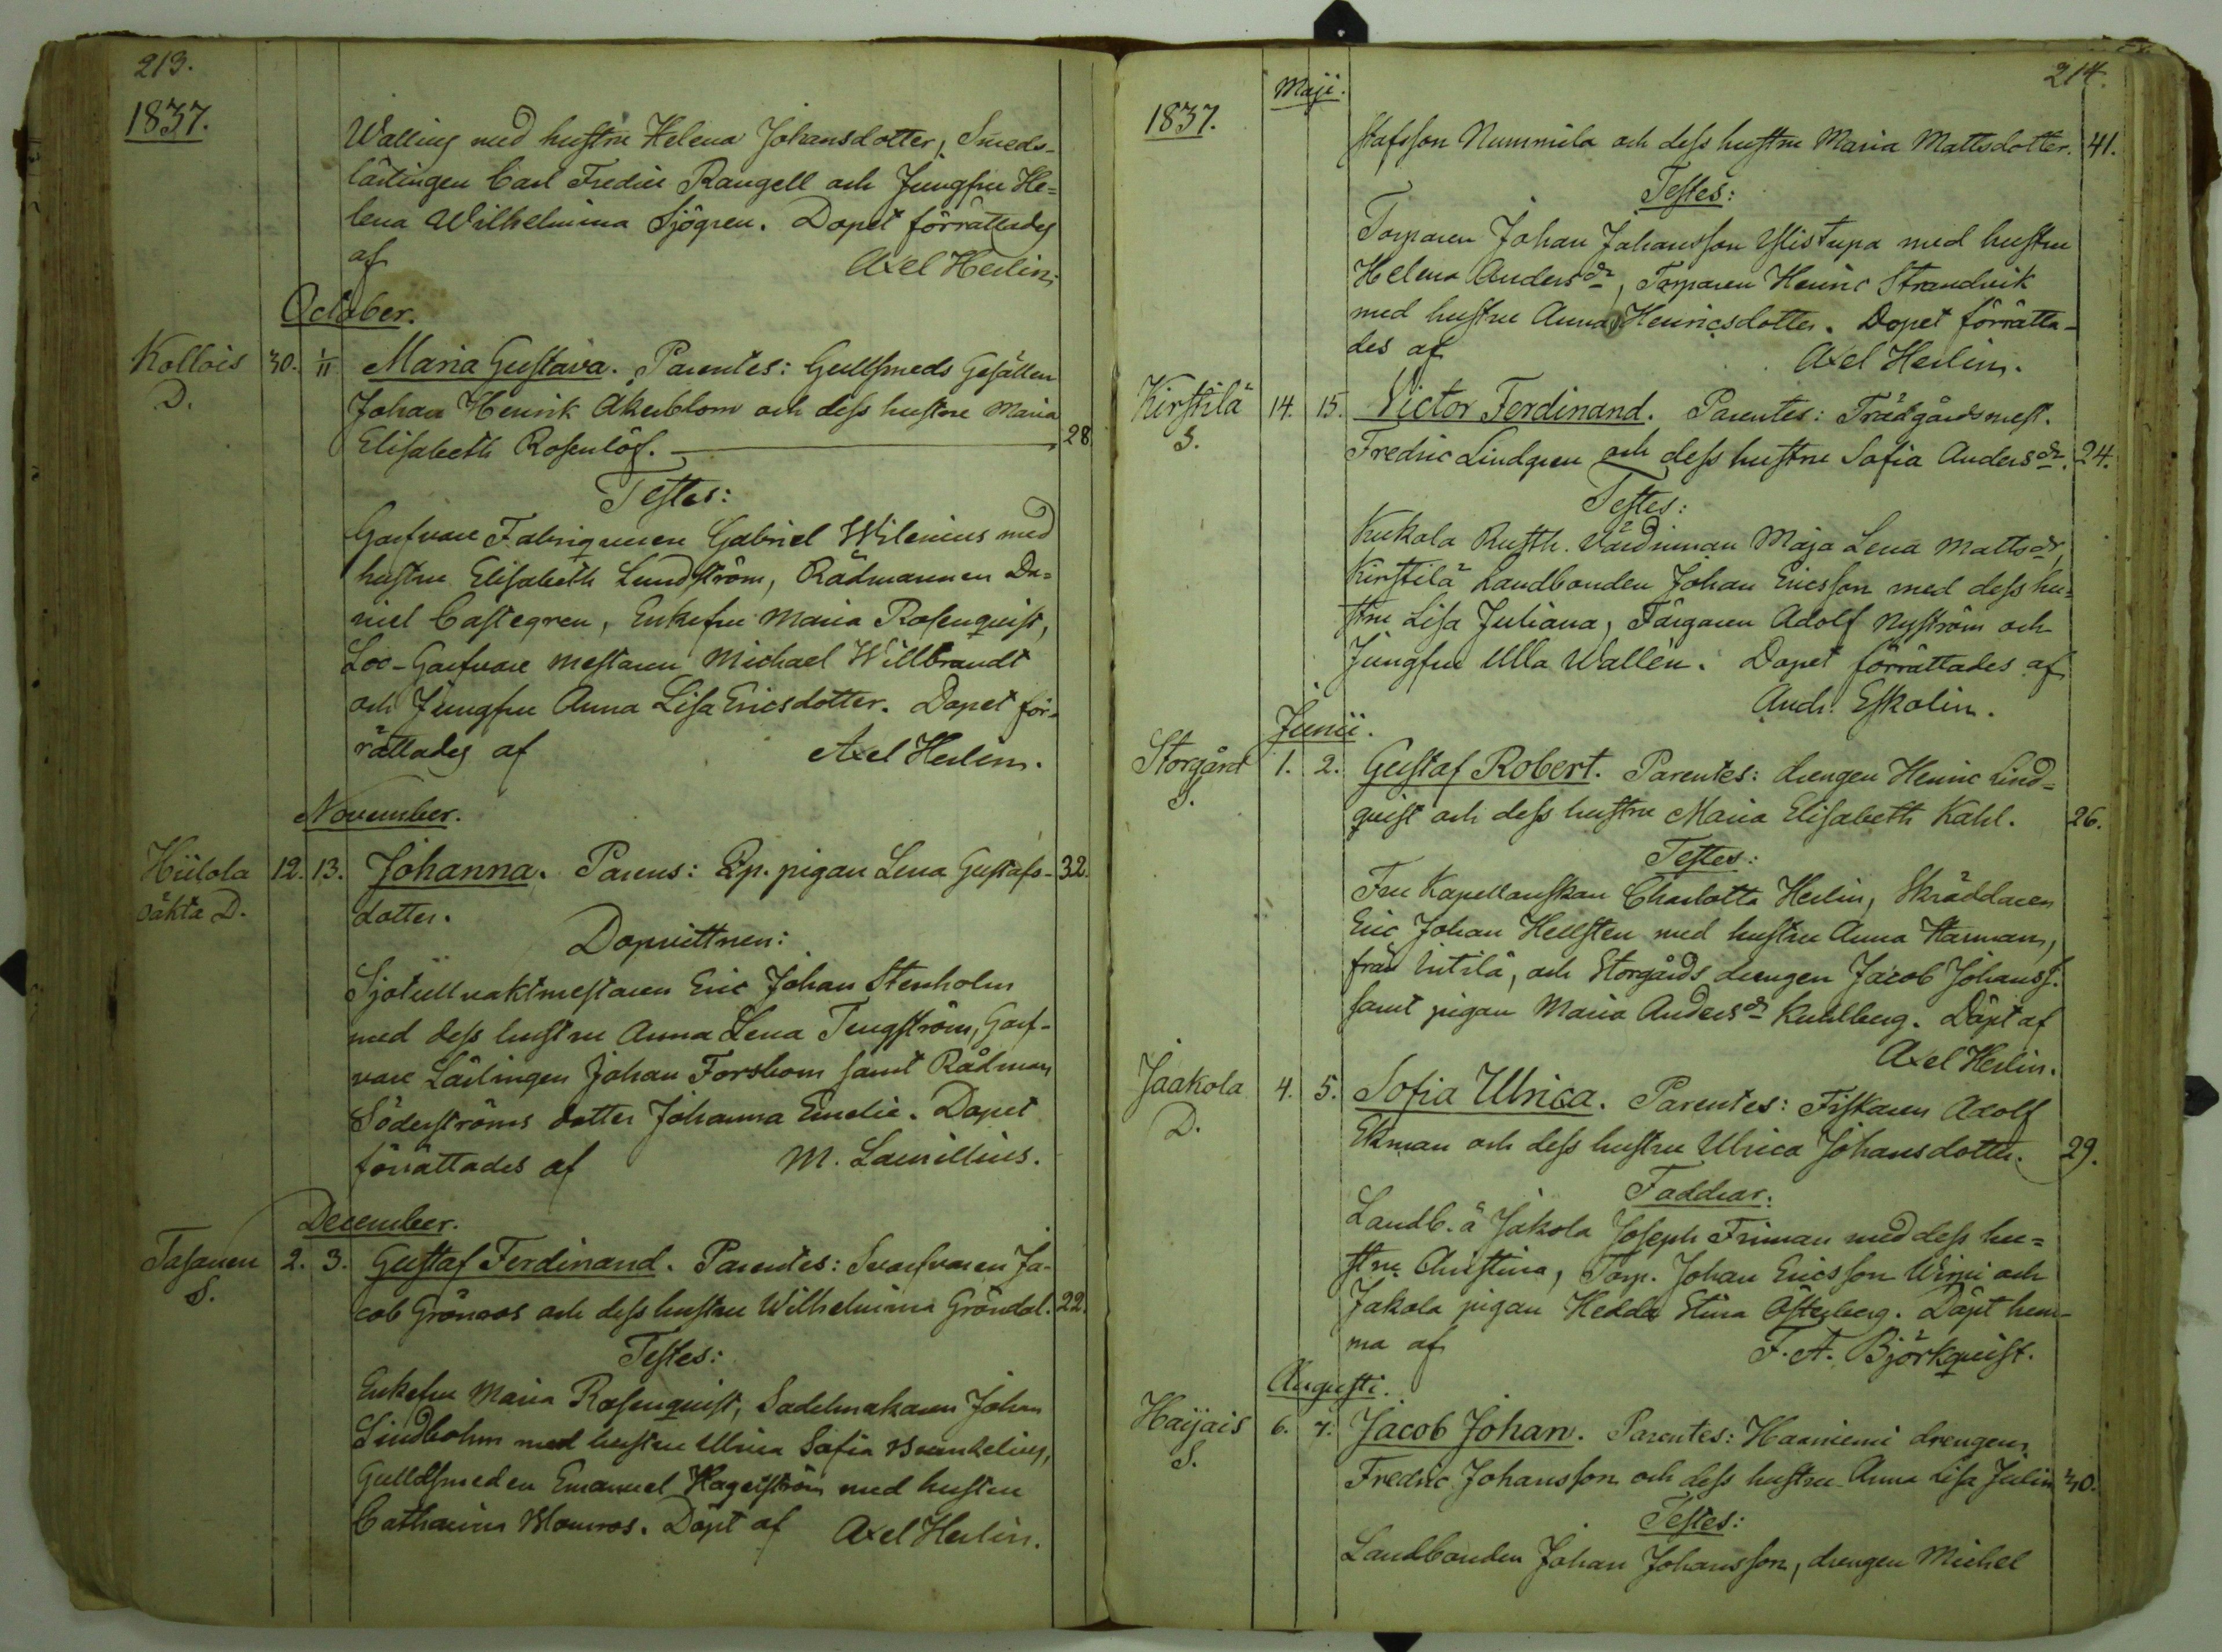 213.
1837.
Walling med hustru Helena Johansdotter, Smeds-
lärlingen Carl Fredric Rangell och Jungfru He-
lena Wilhelmina Sjögren. Dopet förrättades
af Axel Heilin.
October.
Kollois 30. 1/11 Maria Gustava. Parentes: Gullsmeds Gesällen
D. Johan Henrik Åkerblom och dess hustru Maria
Elisabeth Rosenlöf. 28
Testes:
Garfvare Fabriqueuren Gabriel Wilenius med
hustru Elisabeth Lundström, Rådmannen Da-
niel Castegren, Enkefru Maria Rosenquist,
Loo-Garfvare mestaren Michael Willbrandt
och Jungfru Anna Lisa Ericsdotter. Dopet för-
rättades af Axel Heilin.
November.
Hiilola 12. 13. Johanna. Parens: Qp. pigan Lena Gustafs- 32.
oäkta D. dotter.
Dopvittnen:
Sjötullvaktmestaren Eric Johan Stenholm
med dess hustru Anna Lena Tengström, Garf-
vare Lärlingen Johan Forsbom samt Rådman
Söderströms dotter Johanna Emelie. Dopet
förrättades af M. Laurillius.
December.
Tasanen 2. 3. Gustaf Ferdinand. Parentes: Svarfvaren Ja-
S. cob Grönroos och dess hustru Wilhelmina Gröndal. 22.
Testes:
Enkefru Maria Rosenquist, Sadelmakaren Johan
Lindbohm med hustru Ulrica Sofia
Gulldsmeden Emanuel Hagelström med hustru
Catharina Blomros. Döpt af Axel Heilin.
214.
Maji.
1837.
stafsson Nummila och dess hustru Maria Mattsdotter. 41.
Testes:
Torparen Johan Johansson Ylistupa med hustru
Helena Andersdr, Torparen Henric Strandvik
med hustru Anna Henricsdotter. Dopet förrätta-
des af Axel Heilin.
Kirstilä 14. 15. Victor Ferdinand. Parentes: Trädgårdsmest.
S. Fredric Lindgren och dess hustru Sofia Andersdr. 24.
Testes:
Kukola Rusth. värdinnan Maja Lena Mattsdr,
Kirstilä Landbonden Johan Ericsson med dess hu-
stru Lisa Juliana, Färgaren Adolf Nyström och
Jungfru Ulla Wallén. Dopet förrättades af
Andr. Eskolin.
Junii.
Storgård 1. 2. Gustaf Robert. Parentes: drengen Henric Lind-
S. quist och dess hustru Maria Elisabeth Kahl. 26.
Testes:
Fru Kapellanskan Charlotta Heilin, Skräddaren
Eric Johan Hellsten med hustru Anna Harman,
från Intilä, och Storgårds drengen Jacob Johanss.
samt pigan Maria Andersdr Kuhlberg. Döpt af
Axel Heilin.
Jaakola 4. 5. Sofia Ulrica. Parentes: Fiskaren Adolf
D. Ekman och dess hustru Ulrica Johansdotter. 29.
Faddrar.
Landb. å Jakola Joseph Friman med dess hu-
stru Christina, Torp. Johan Ericsson Wirpi och
Jakola pigan Hedda Stina Österberg. Döpt hem-
ma af F. A. Björkquist.
Augusti.
Haijais 6. 7. Jacob Johan. Parentes: Haaniemi drengen
S. Fredric Johansson och dess hustru Anna Lisa Julin 40.
Testes:
Landbonden Johan Johansson, drengen Michel